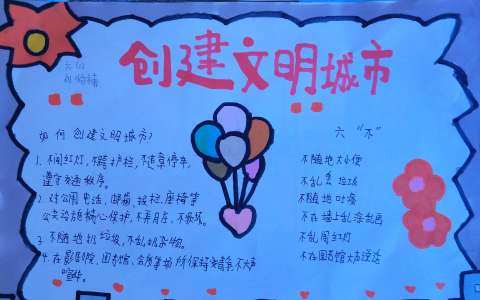 创建文明城市
如何创建文明城市?
1. 不闯红灯,不跨护栏,不违章停车,
遵守交通秩序。
2. 对公用电话、邮箱、报栏、座椅等
公共设施精心保护,不弄脏、不损坏。
3. 不随地扔垃圾,不乱扔杂物。
4. 在影剧院、图书馆、会议等场所保持安静不大声
喧哗。
六“不”
不随地大小便
不乱丢垃圾
不随地吐痰
不在墙上乱涂乱画
不乱闯红灯
不在图书馆大声